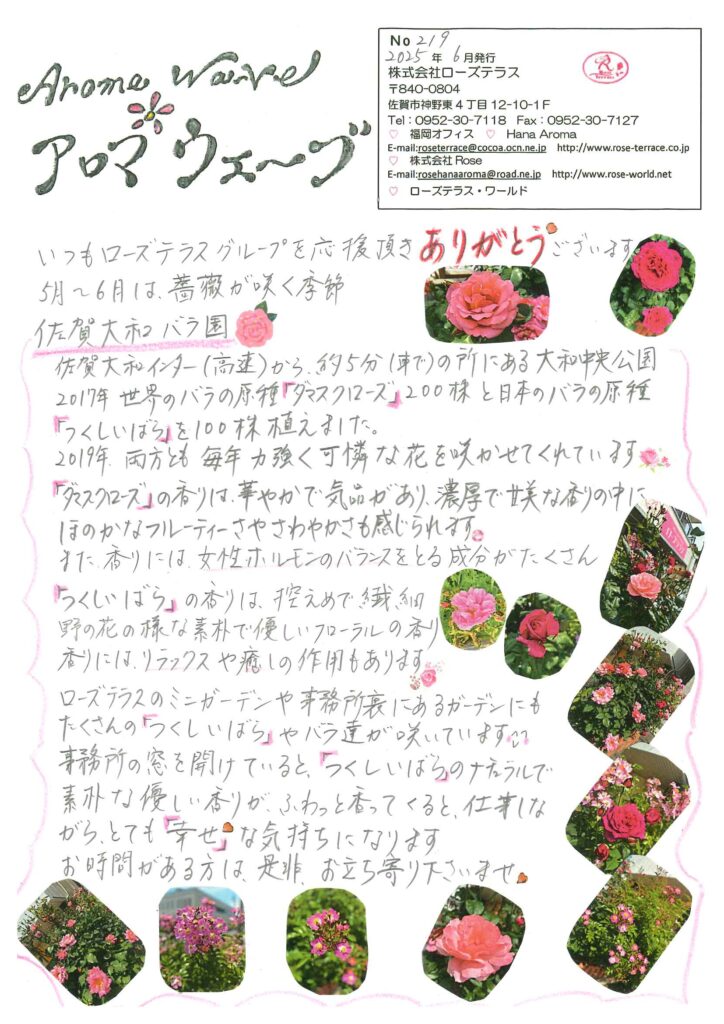 Arome Wave
アロマウェーブ
No 219
2025年 6月発行
株式会社ローズテラス
〒840-0804
佐賀市神野東4丁目12-10-1F
Tel:0952-30-7118 Fax:0952-30-7127
♡ 福岡オフィス ♡ Hana Aroma
E-mail:roseterrace@cocoa.ocn.ne.jp http://www.rose-terrace.co.jp
♡ 株式会社 Rose
E-mail:rosehanaaroma@road.ne.jp http://www.rose-world.net
♡ ローズテラス・ワールド
いつもローズテラスグループを応援頂きありがとうございます
5月〜6月は、薔薇が咲く季節
佐賀大和バラ園
佐賀大和インター(高速)から、約5分(車で)の所にある大和中央公園
2017年 世界のバラの原種「ダマスクローズ」200株と日本のバラの原種
「つくしいばら」を100株植えました。
2019年、両方とも毎年力強く可憐な花を咲かせてくれています
「ダマスクローズ」の香りは、華やかで気品があり、濃厚で甘美な香りの中に
ほのかなフルーティーさやさわやかさも感じられます
また、香りには、女性ホルモンのバランスをとる成分がたくさん
「つくしいばら」の香りは、控えめで繊細
野の花の様な素朴で優しいフローラルの香り
香りには、リラックスや癒しの作用もあります
ローズテラスのミニガーデンや事務所裏にあるガーデンにも
たくさんの「つくしいばら」やバラ達が咲いています
事務所の窓を開けていると、「つくしいばら」のナチュラルで
素朴な優しい香りが、ふわっと香ってくると、仕事しな
がら、とても「幸せ」な気持ちになります
お時間がある方は、是非、お立ち寄り下さいませ